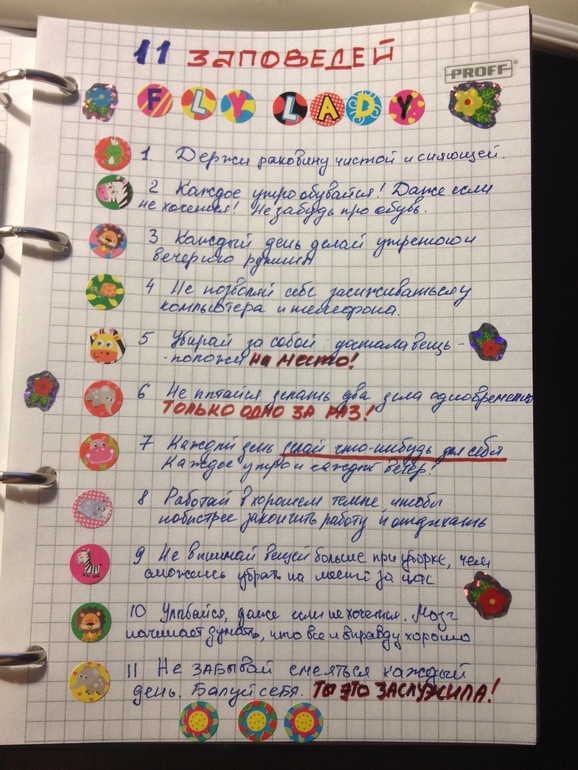 11 ЗАПОВЕДЕЙ
PROFF
FLY LADY
1. Держи раковину чистой и сияющей.
2 Каждое утро обувайся! Даже если
не хочется! Не забудь про обувь.
3 Каждый день делай утреннюю и
вечернюю рутины
4 Не позволяй себе засиживаться у
компьютера и телефона.
5 Убирай за собой: достала вещь -
- положи на место!
6 Не пытайся делать два дела одновременно
ТОЛЬКО ОДНО ЗА РАЗ!
7 Каждый день делай что-нибудь для себя
Каждое утро и каждый вечер!
8 Работай в хорошем темпе чтобы
побыстрее закончить работу и отдыхать
9 Не вынимай вещей больше при уборке, чем
сможешь убрать на место за час
10 Улыбайся, даже если не хочется. Мозг
начинает думать, что все и вправду хорошо
11 Не забывай смеяться каждый
день. Балуй себя. ТЫ ЭТО ЗАСЛУЖИЛА!